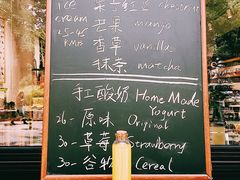 ice 栗子 chestnut
cream 芒果 mango
25-45 香草 vanilla
RMB 抹茶 matcha
手工酸奶 Home Made
Yogurt
26- 原味 Original
30- 草莓 Strawberry
30- 谷物 Cereal